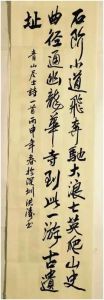 石阶小道飞奔驰大浪七英爬山史
曲径通幽龙华寺到此一游古遗
址
青山居士诗一首丙申年春于深圳洪涛书